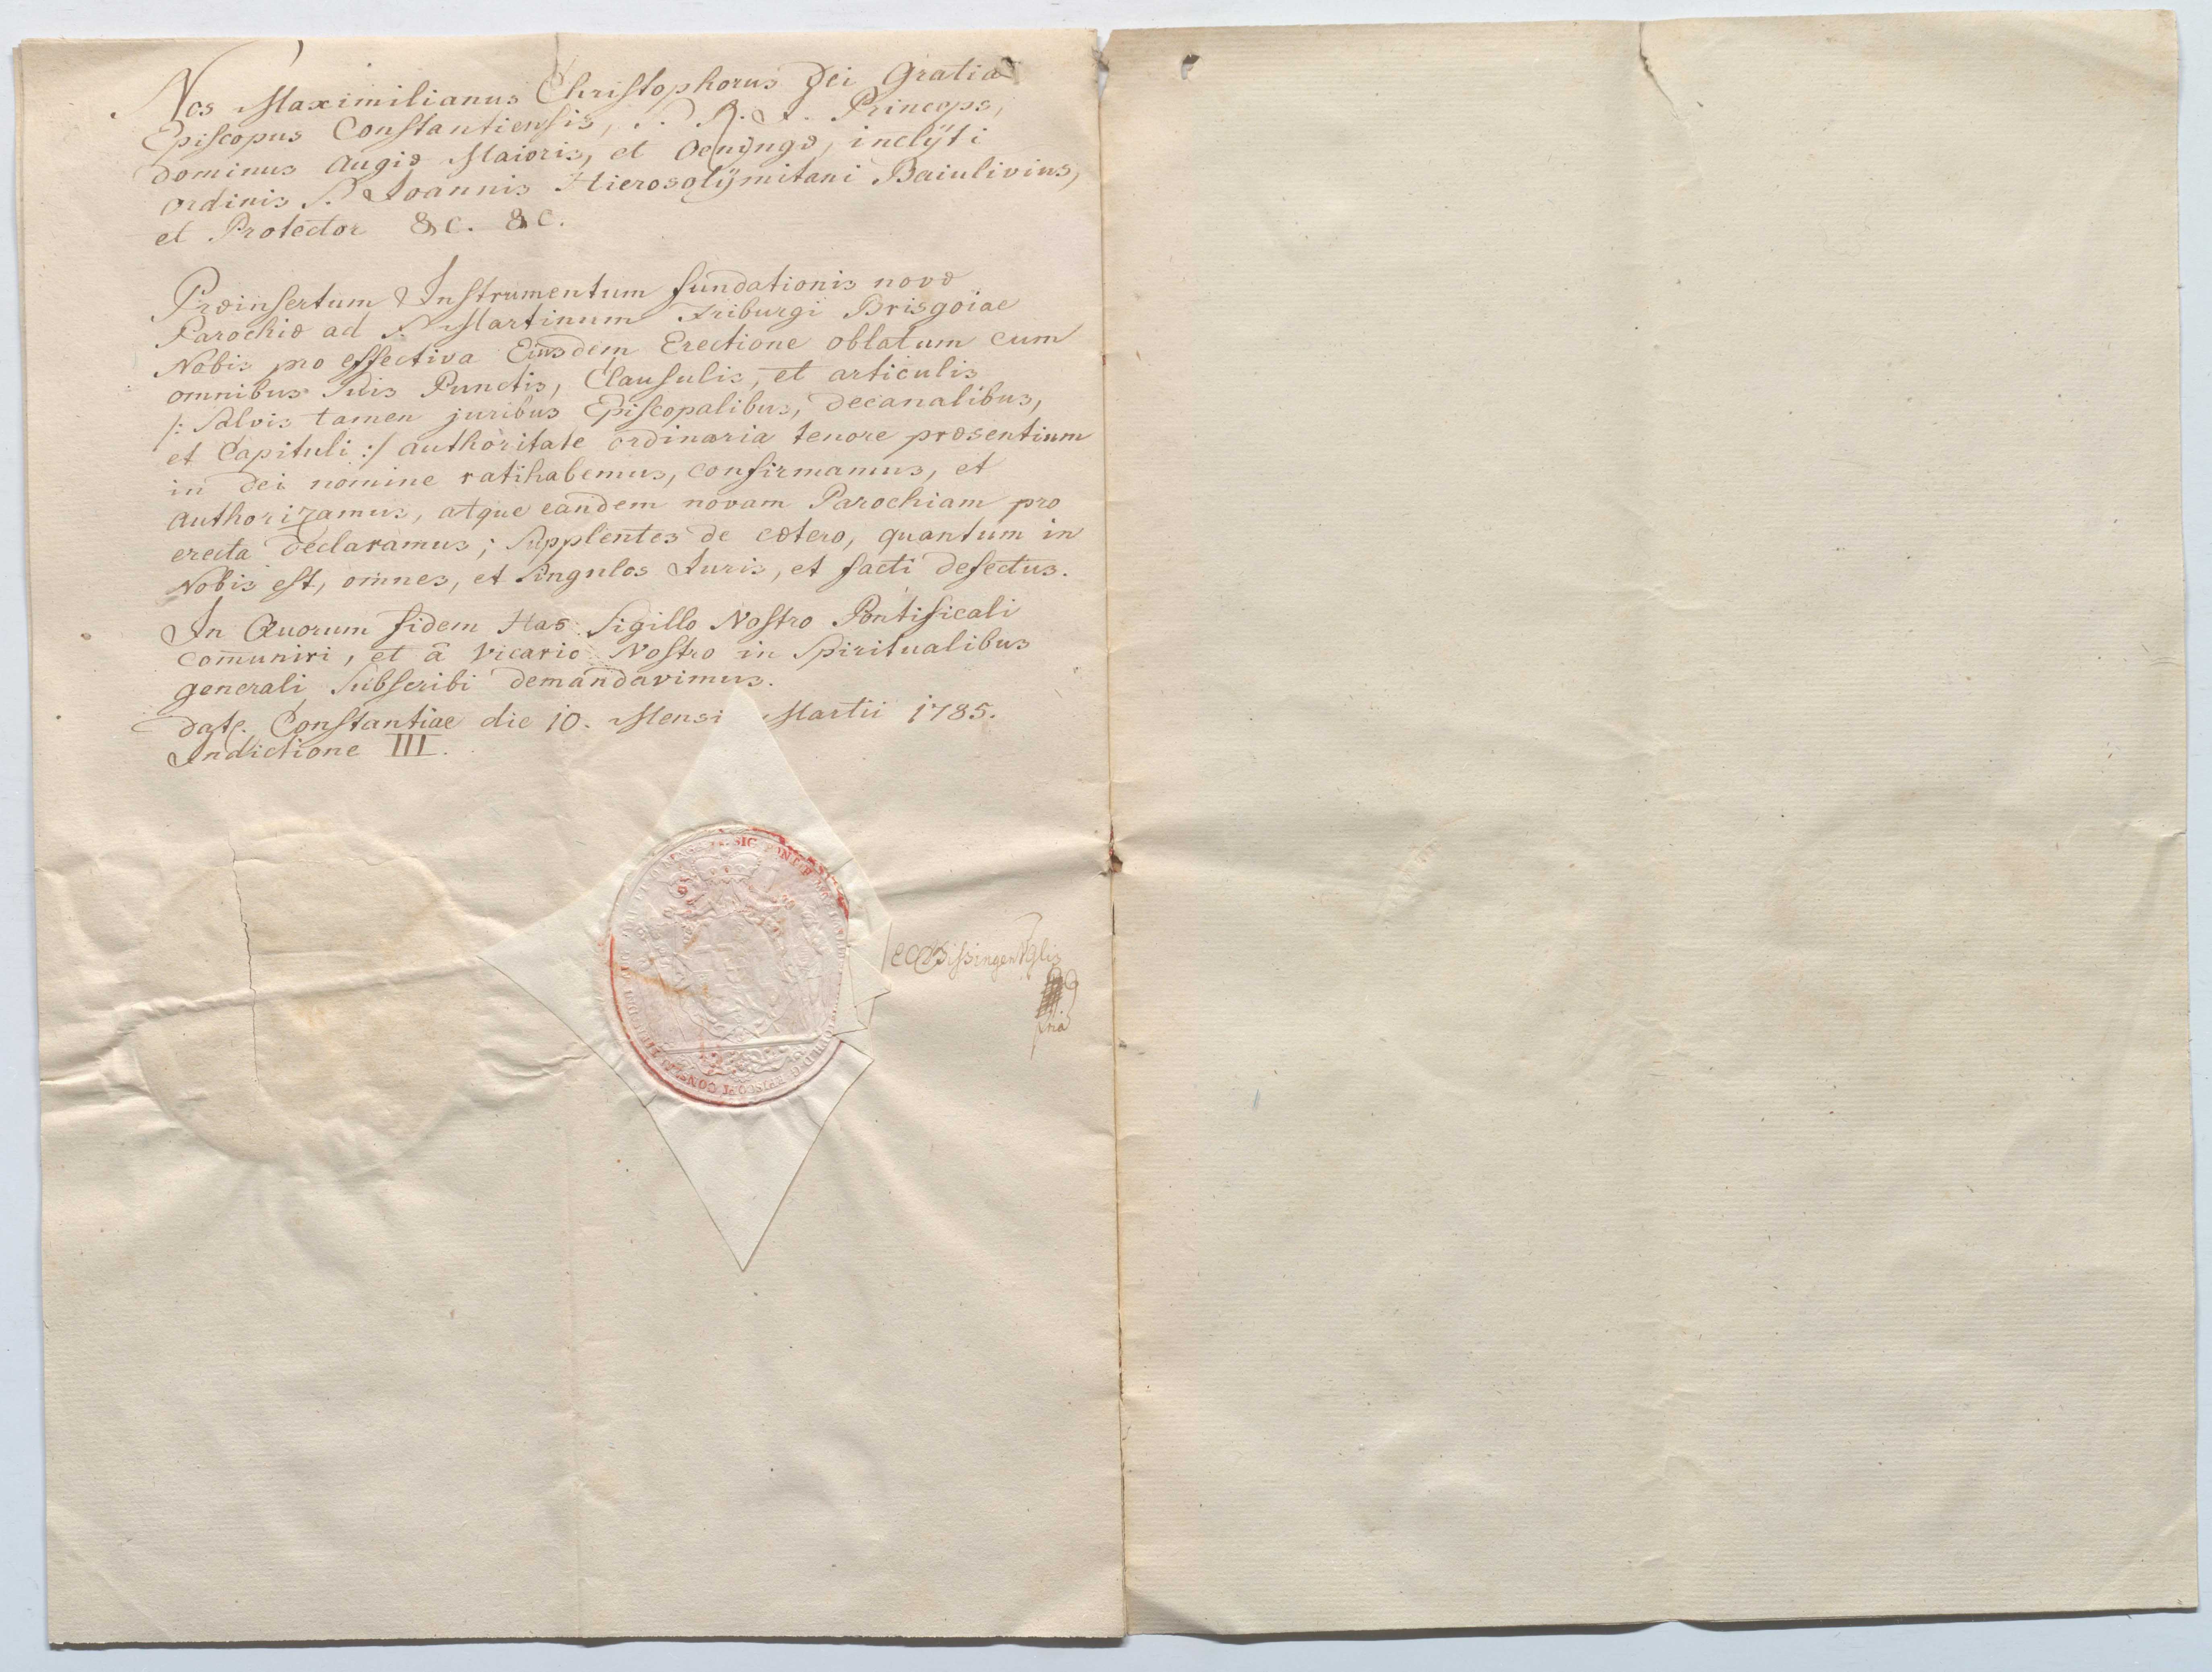 Nos Maximilianus Christophorus Dei Gratia
Episcopus Constantiensis, S. R. I. Princeps,
Dominus Augiæ Maioris, et Oeningæ, inclÿti
ordinis S. Joannis Hierosolÿmitani Baiulivius,
et Protector &c. &c.
Præinsertum Instrumentum fundationis novæ
Parochiæ ad S. Martinum Friburgi Brisgoiae
Nobis pro effectiva Eiusdem Erectione oblatum cum
omnibus Suis Punctis, Clausulis, et articulis
/: Salvis tamen juribus Episcopalibus, Decanalibus,
et Capituli :/ authoritate ordinaria tenore præsentium
in Dei nomine ratihabemus, confirmamus, et
authorizamus, atque eandem novam Parochiam pro
erecta declaramus; Supplentes de cætero, quantum in
Nobis est, omnes, et Singulos Juris, et facti defectus.
In Quorum fidem Has Sigillo Nostro Pontificali
com̄uniri, et â Vicario Nostro in Spiritualibus
generali Subscribi demandavimus.
Constantiae die 10. Mensi Martii 1785.
Indictione III.
SIG
EPISCOP CONST
Bissingen